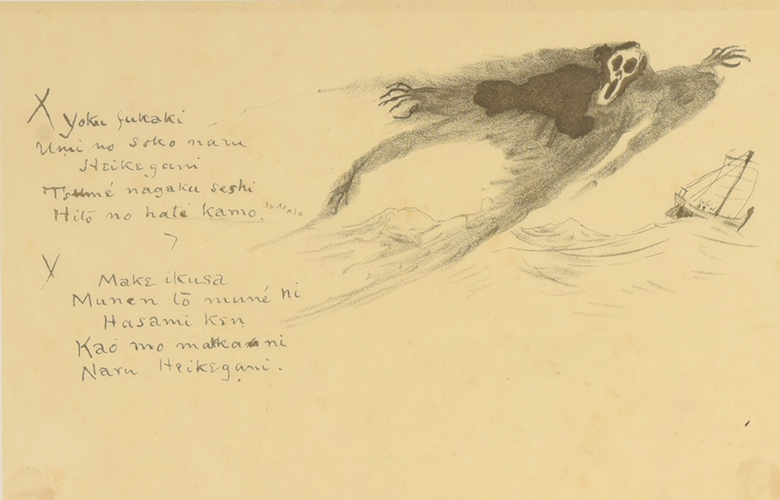 X Yoku fukaki
Umi no soko naru
Heikegani
Tsumé nagaku seshi
Hito no haté kamo.
X
Make ikusa
Munen to muné ni
Hasami ken
Kao mo makka ni
Naru Heikegani.